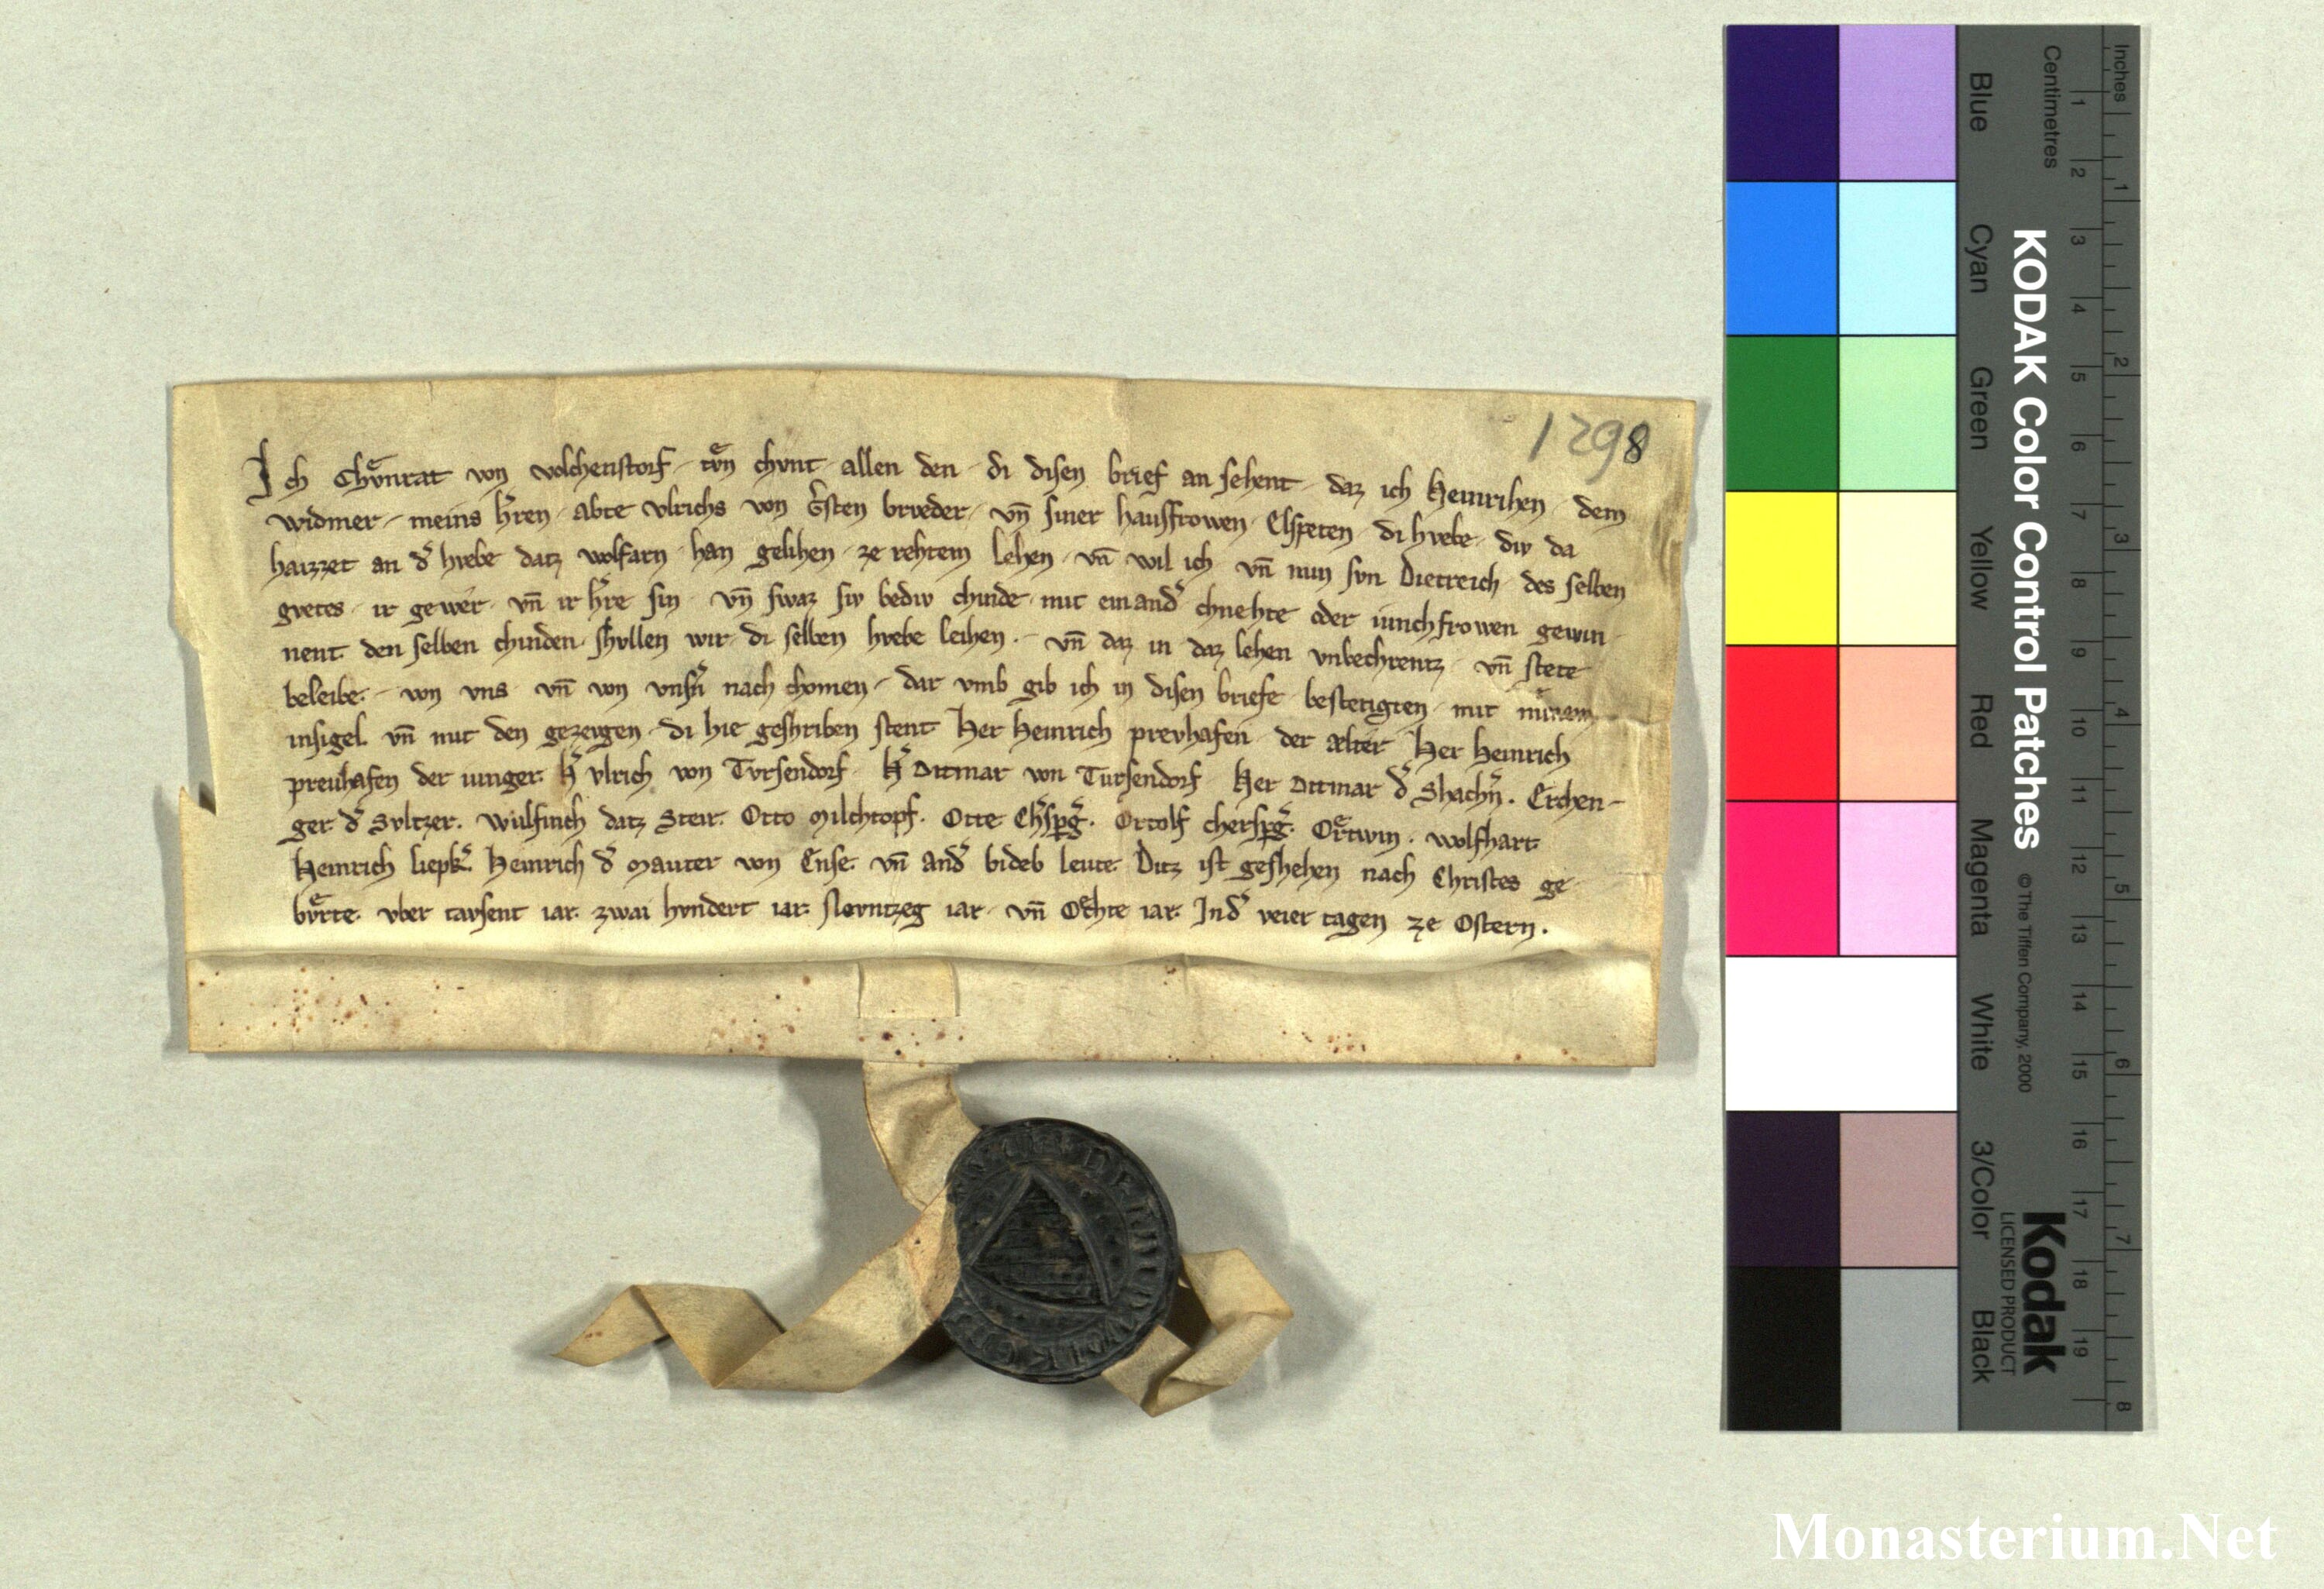 1298
Ich Chuͤnrat von volchenstorf · tuͦn chunt · allen den · di disen brief an sehent · daz ich Heinrihen · dem
widmer · meins h̄ren · abte vlrichs von C̄sten brueder · vn̄ siner hausfrowen · Elspeten · di hvebe · div da
haizzet an d͛ hvebe datz wolfarn · han gelihen · ze rehtem lehen · vn̄ wil ich vn̄ min svn Dietreich · des selben
gvetes · ir gewer · vn̄ ir h̄re sin · vn̄ swaz siv bediv chinde · mit einand͛ chnehte oder iunchfrowen gewin-
nent den selben chinden · shvllen wir · di selben hvebe leihen · vn̄ daz in daz lehen vnbechrentz · vn̄ stete
beleibe · von vns vn̄ von vnsn̄ nach chomen · dar vmb gib ich in disen briefe · bestetigten · mit minem
insigel vn̄ mit den gezeugen · di hie geshriben stent Her Heinrich prevhafen · der alter Her Heinrich
preuhafen der iunger · H͛ Vlrich von Tvrsendorf · H͛ Ditmar von Tursendorf · Her Ditmar d͛ Shachn̄ · Erchen-
ger · d͛ Svltzer · Wulfinch datz Steir · Otto Milchtopf · Otte Ch͛spg͛ · Ortolf cherspg͛ · Oͤrtwin · wolfhart
Heinrich liepk͛ · Heinrich d͛ Mauter von Ense · vn̄ and͛ bideb leute · Ditz ist geshehen nach Christes ge-
bvͤrte · vber tavsent iar · zwai hvndert iar · Nevntzeg iar · vn̄ Oͤchte iar · In d͛ veier tagen ze Ostern ·
Inches
Centimetres
1 2 3 4 5 6 7 8 9 10 11 12 13 14 15 16 17 18 19
1 2 3 4 5 6 7 8
KODAK Color Control Patches
© The Tiffen Company, 2000
Kodak
LICENSED PRODUCT
Blue Cyan Green Yellow Red Magenta White 3/Color Black
Monasterium.Net